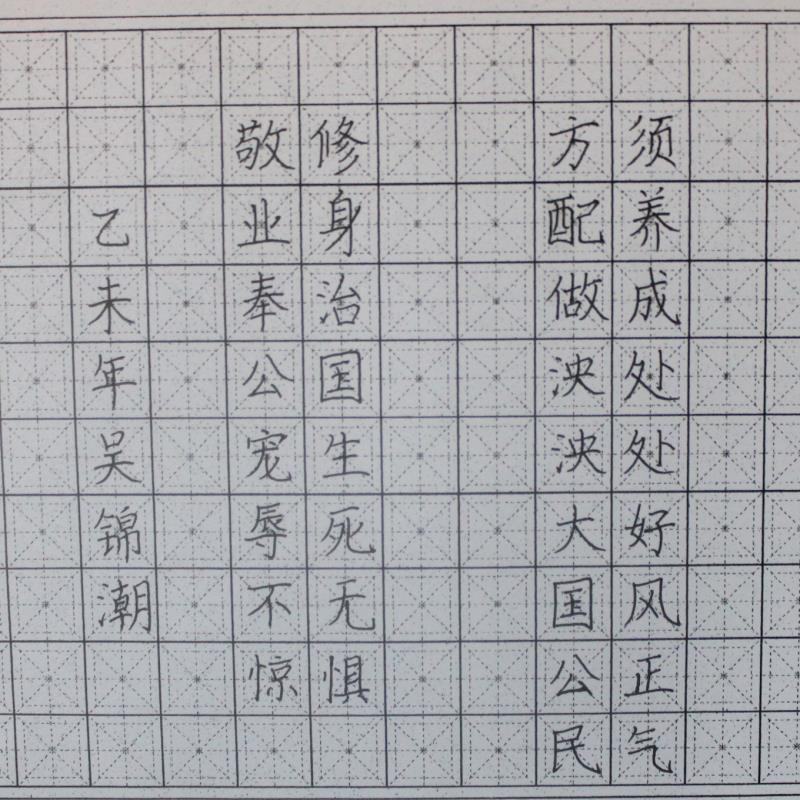 须养成处处好风正气
方配做泱泱大国公民
修身治国生死无惧
敬业奉公宠辱不惊
乙未年吴锦潮